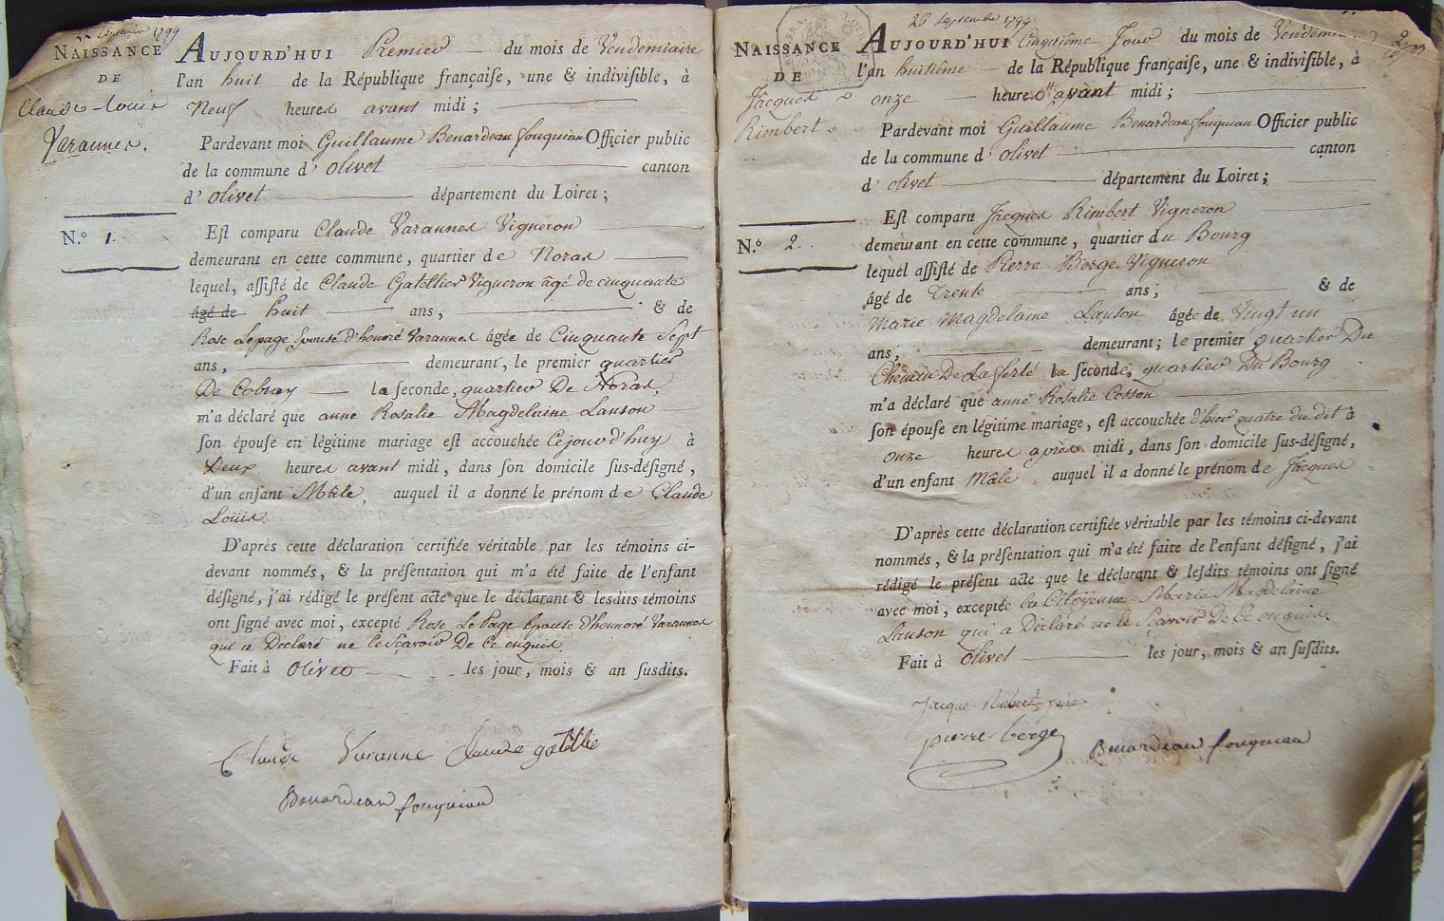 Septembre 1799
NAISSANCE
DE
Claude-Louis
Varannes.
N.º 1.
AUJOURD'HUI Premier du mois de Vendemiaire
l'an huit de la République françaiſe, une & indiviſible, à
Neuf heures avant midi ;
Pardevant moi Guillaume Benardeau fouquiau Officier public
de la commune d' olivet canton
d' olivet département du Loiret ;
Eſt comparu Claude Varannes Vigneron
demeurant en cette commune, quartier de Noras
lequel, aſſiſté de Claude Gatellier Vigneron âgé de cinquante
âgé de huit ans, & de
Rose Lepage Epouse d'honoré Varannes âgée de Cinquante Sept
ans, demeurant, le premier quartier
De Cobray la ſeconde, quartier De Noras,
m'a déclaré que anne Rosalie Magdelaine Lanson
ſon épouſe en légitime mariage eſt accouchée Ce jour d'huy à
deux heures avant midi, dans ſon domicile ſus-déſigné,
d'un enfant Mâle, auquel il a donné le prénom de Claude
Louis.
D'après cette déclaration certifiée véritable par les témoins ci-
devant nommés, & la préſentation qui m'a été faite de l'enfant
déſigné, j'ai rédigé le préſent acte que le déclarant & lesdits témoins
ont ſigné avec moi, excepté Rose Le Page Epouse d'honoré Varannes
qui a Declaré ne le Sçavoir De Ce enquis.
Fait à Olivet les jour, mois & an ſusdits.
Claude Varanne Claude gatellie
Benardeau fouquiau
26 Septembre 1799
NAISSANCE
DE
Jacques
Rimbert.
N.º 2.
AUJOURD'HUI Cinquième Jour du mois de Vendém
l'an huitième de la République françaiſe, une & indiviſible, à
onze heures avant midi ;
Pardevant moi Guillaume Benardeau fouquiau Officier public
de la commune d' olivet canton
d' olivet département du Loiret ;
Eſt comparu Jacques Rimbert Vigneron
demeurant en cette commune, quartier du Bourg
lequel aſſiſté de Pierre Berge Vigneron
âgé de Trente ans ; & de
Marie Magdelaine Lanson âgée de Vingt un
ans, demeurant ; le premier quartier Du
Chemin De La ferté la ſeconde, quartier Du Bourg
m'a déclaré que anne Rosalie Cosson
ſon épouſe en légitime mariage, eſt accouchée d'hier quatre du dit à
onze heures après midi, dans ſon domicile ſus-déſigné,
d'un enfant Mâle auquel il a donné le prénom de Jacques
D'après cette déclaration certifiée véritable par les témoins ci-devant
nommés, & la préſentation qui m'a été faite de l'enfant déſigné, j'ai
rédigé le préſent acte que le déclarant & leſdits témoins ont ſigné
avec moi, excepté la Citoyenne Marie Magdelaine
Lanson qui a Déclaré ne le Scavoir De Ce enquis.
Fait à Olivet les jour, mois & an ſuſdits.
Jacque
pierre berge Benardeau fouquiau